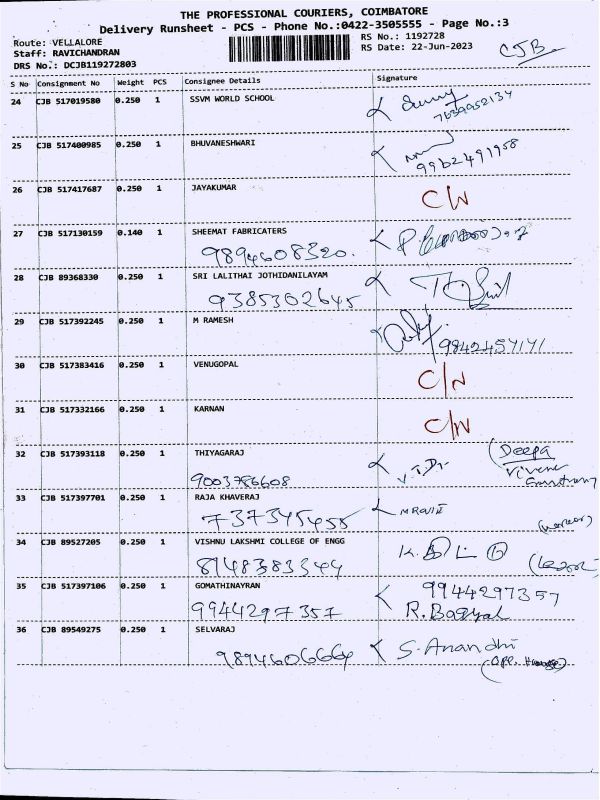 THE PROFESSIONAL COURIERS, COIMBATORE
Delivery Runsheet - PCS - Phone No.:0422-3505555 - Page No.:3
Route: VELLALORE
RS No.: 1192728
Staff: RAVICHANDRAN
RS Date: 22-Jun-2023
CJB
DRS No.: DCJB119272803
S No Consignment No Weight PCS Consignee Details Signature
24 CJB 517019580 0.250 1 SSVM WORLD SCHOOL
7639952134
25 CJB 517400985 0.250 1 BHUVANESHWARI
9962491958
26 CJB 517417687 0.250 1 JAYAKUMAR C/N
27 CJB 517130159 0.140 1 SHEEMAT FABRICATERS
9894608320.
28 CJB 89368330 0.250 1 SRI LALITHAI JOTHIDANILAYAM
9385302645
29 CJB 517392245 0.250 1 M RAMESH
9842457171
30 CJB 517383416 0.250 1 VENUGOPAL C/N
31 CJB 517332166 0.250 1 KARNAN C/N
32 CJB 517393118 0.250 1 THIYAGARAJ Deepa
9003786608
33 CJB 517397701 0.250 1 RAJA KHAVERAJ
737345455
34 CJB 89527205 0.250 1 VISHNU LAKSHMI COLLEGE OF ENGG
8148383344
35 CJB 517397106 0.250 1 GOMATHINAYRAN 9944297357
9944297357 R. Bagyal
36 CJB 89549275 0.250 1 SELVARAJ S. Anandhi
9894606664 (opp. House)